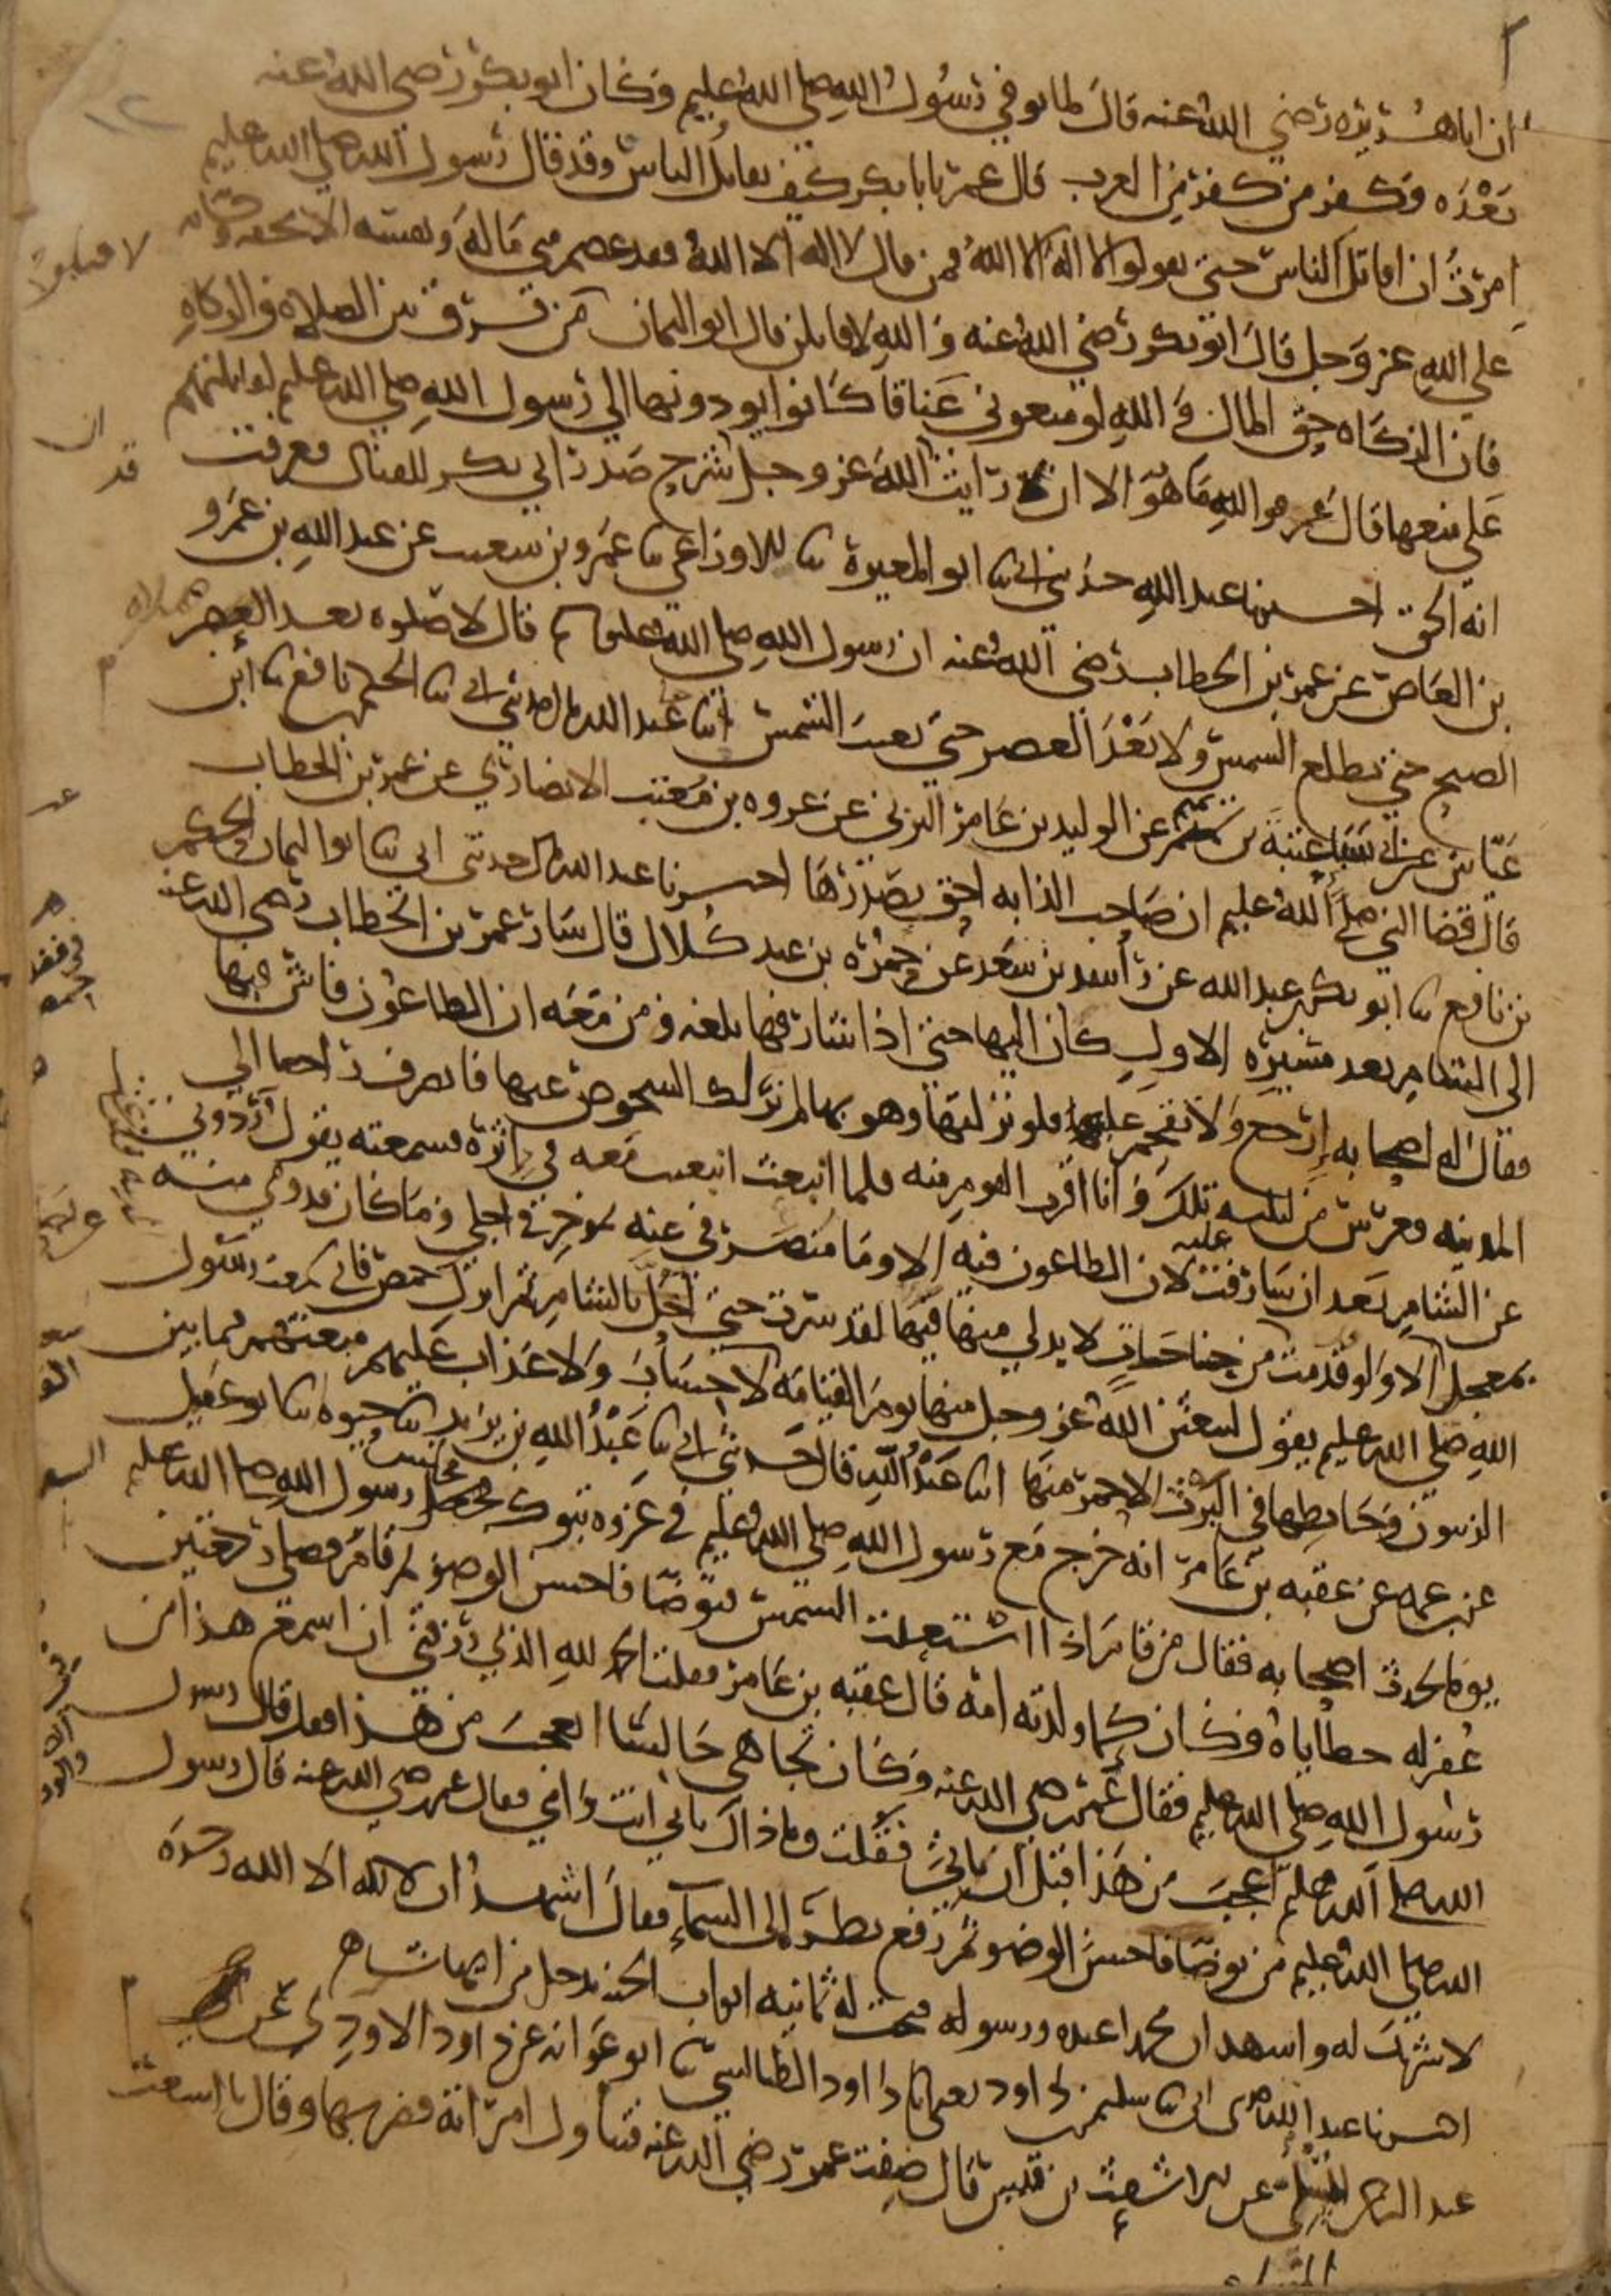 ان ابا هريرة رضي الله عنه قال لما توفي رسول الله صلى الله عليه وسلم وكان ابو بكر رضي الله عنه
بعده وكفر من كفر من العرب قال عمر يابا بكر كيف نقاتل الناس وقد قال رسول الله صلى الله عليه وسلم
امرت ان اقاتل الناس حتى يقولوا لا اله الا الله فمن قال لا اله الا الله فقد عصم مني ماله ونفسه الا بحقه وحسابه
على الله عز وجل قال ابو بكر رضي الله عنه والله لاقاتلن قال ابو اليمان من فرق بين الصلاة والزكاة
فان الزكاه حق المال والله لو منعوني عناقا كانوا يودونها الى رسول الله صلى الله عليه وسلم لقاتلتهم
على منعها قال عمر فو الله ما هو الا ان رايت الله عز وجل شرح صدر ابي بكر للقتال فعرفت
انه الحق اخبرنا عبد الله حدثني ابي ثنا ابو المغيرة ثنا الاوزاعي ثنا عمرو بن شعيب عن عبد الله بن عمرو
بن العاص عن عمر بن الخطاب رضي الله عنه ان رسول الله صلى الله عليه وسلم قال لا صلوه بعد
الصبح حتى تطلع الشمس ولا بعد العصر حتى تغيب الشمس ثنا عبد الله قال حدثني ابي ثنا الحكم بن نافع ثنا ابن
عياش عن ابي سبا عتبة بن تميم عن الوليد بن عامر اليزني عن عروه بن معتب الانصاري عن عمر بن الخطاب
قال قضا النبي صلى الله عليه وسلم ان صاحب الدابه احق بصدرها اخبرنا عبد الله قال حدثني ابي ثنا ابو اليمان الحكم
بن نافع ثنا ابو بكر بن عبد الله عن راشد بن سعد عن حمزه بن عبد كلال قال سار عمر بن الخطاب رضي الله عنه
الى الشام بعد مسيره الاول كان اليها حتى اذا شارفها بلغه ومن معه ان الطاعون فاش فيها
فقال له اصحابه ارجع ولا تقحم عليه فلو نزلتها وهو بها لم نر لك الشخوص عنها فانصرف راجعا الى
المدينه فعرس من ليلته تلك وانا اقرب القوم منه فلما انبعث انبعثت معه في اثره فسمعته يقول ردوني
عن الشام بعد ان شارفت عليه لان الطاعون فيه الا وما منصرفي عنه موخر في اجلي وما كان قدومي منه
بمعجلي الا ولو قدمت من حاجات لا بد لي منها فيها لقد سرت حتى ادخل الشام ثم انزل حمص فاني سمعت رسول
الله صلى الله عليه وسلم يقول ليبعثن الله عز وجل منها يوم القيامه لا حساب ولا عذاب عليهم مبعثهم فيما بين
الزيتون وحايطها في البرث الاحمر منها ثنا عبد الله قال حدثني ابي ثنا عبد الله بن يزيد ثنا حيوه ثنا ابو عقيل
عن ابن عمه عن عقبه بن عامر انه خرج مع رسول الله صلى الله عليه وسلم في غزوه تبوك فجلس رسول الله صلى الله عليه وسلم
يوما يحدث اصحابه فقال من قام اذا استقلت الشمس فتوضا فاحسن الوضو ثم قام فصلى ركعتين
غفر له خطاياه فكان كما ولدته امه قال عقبه بن عامر فقلت الحمد لله الذي رزقني ان اسمع هذا من
رسول الله صلى الله عليه وسلم فقال عمر رضي الله عنه وكان تجاهي جالسا اتعجب من هذا فقد قال رسول
الله صلى الله عليه وسلم اعجب من هذا قبل ان تاتي فقلت وما ذاك بابي انت وامي فقال عمر رضي الله عنه قال رسول
الله صلى الله عليه وسلم من توضا فاحسن الوضو ثم رفع نظره الى السماء فقال اشهد ان لا اله الا الله وحده
لا شريك له واشهد ان محمدا عبده ورسوله فتحت له ثمانيه ابواب الجنه يدخل من ايها شاء
اخبرنا عبد الله حدثني ابي ثنا سليمن بن داود يعني ابا داود الطيالسي ثنا ابو عوانه عن داود الاودي عن
عبد الرحمن المسلي عن الاشعث بن قيس قال ضفت عمر رضي الله عنه فتناول امراته فضربها وقال يا اشعث